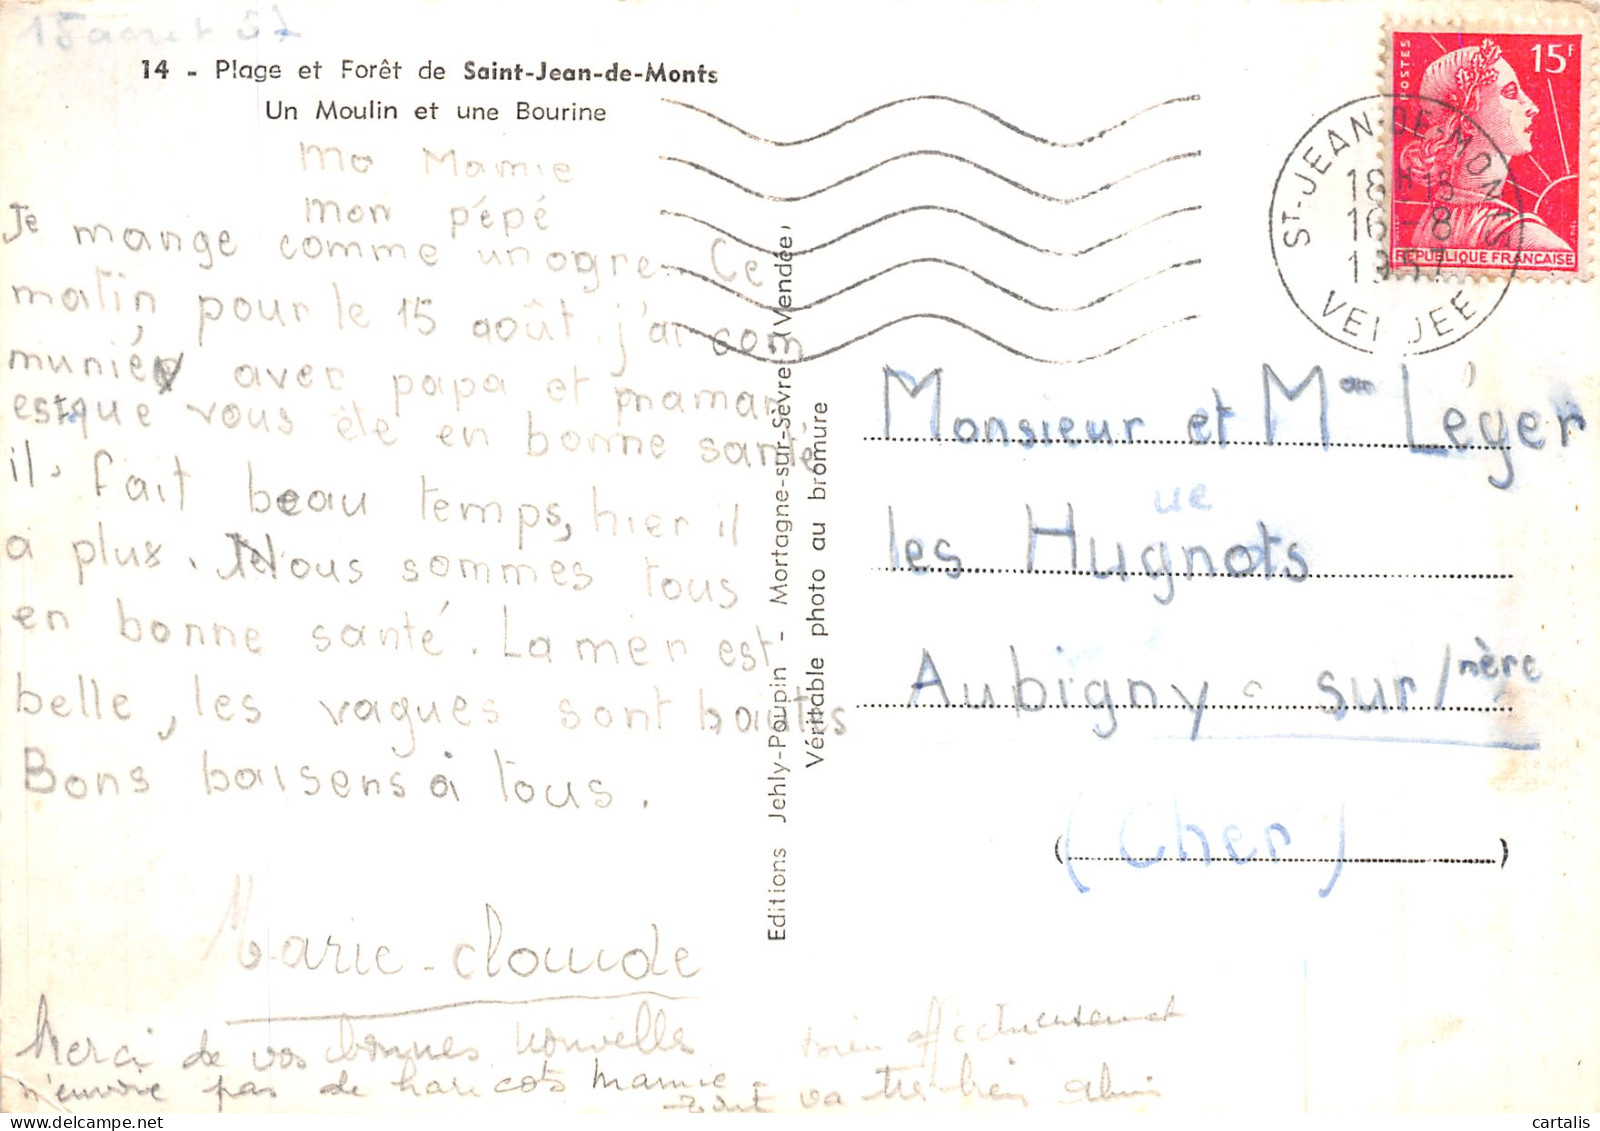 15 aout 57
14 - Plage et Forêt de Saint-Jean-de-Monts
Un Moulin et une Bourine
Ma Mamie
mon pépé
Je mange comme un ogre. Ce
matin pour le 15 août, j'ai com
munié avec papa et maman
estque vous ête en bonne santé
il fait beau temps, hier il
a plux. Nous sommes tous
en bonne santé. La mer est
belle, les vagues sont hautes
Bons baisers à tous.
Marie-claude
Merci de vos bonnes nouvelle
n'envoie pas de haricots Mamie -
tout va très bien
bien affectueusement
Editions Jehly-Poupin - Mortagne-sur-Sèvre (Vendée)
Véritable photo au bromure
POSTES
15F
REPUBLIQUE FRANÇAISE
ST-JEAN-DE-MONTS
18H15
16-8
1957
VENDEE
Monsieur et Mme Léger
ue
les Hugnots
Aubigny - sur/nère
(Cher)
cartalis